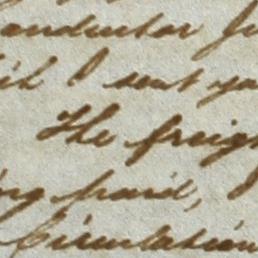 onductor
I sent yo
The freigh
ing paid,
Circulation